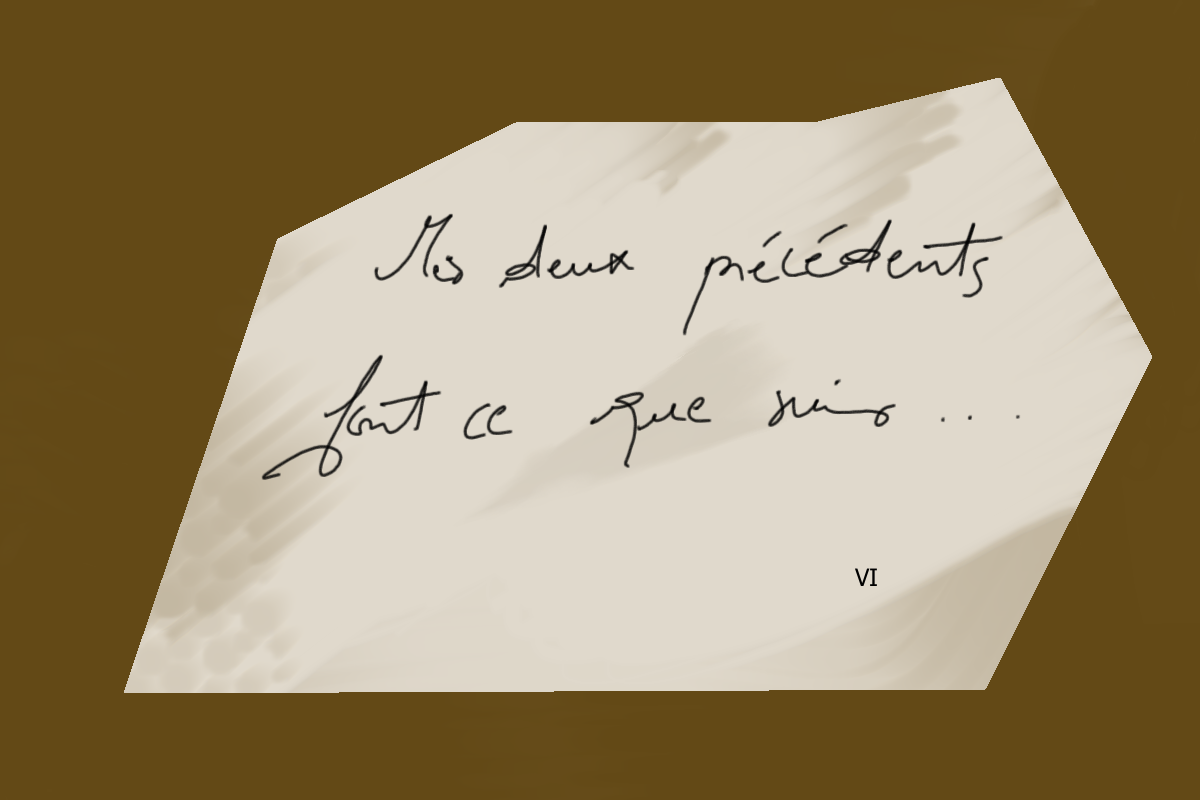 Mes deux précédents
font ce que suis ....
VI